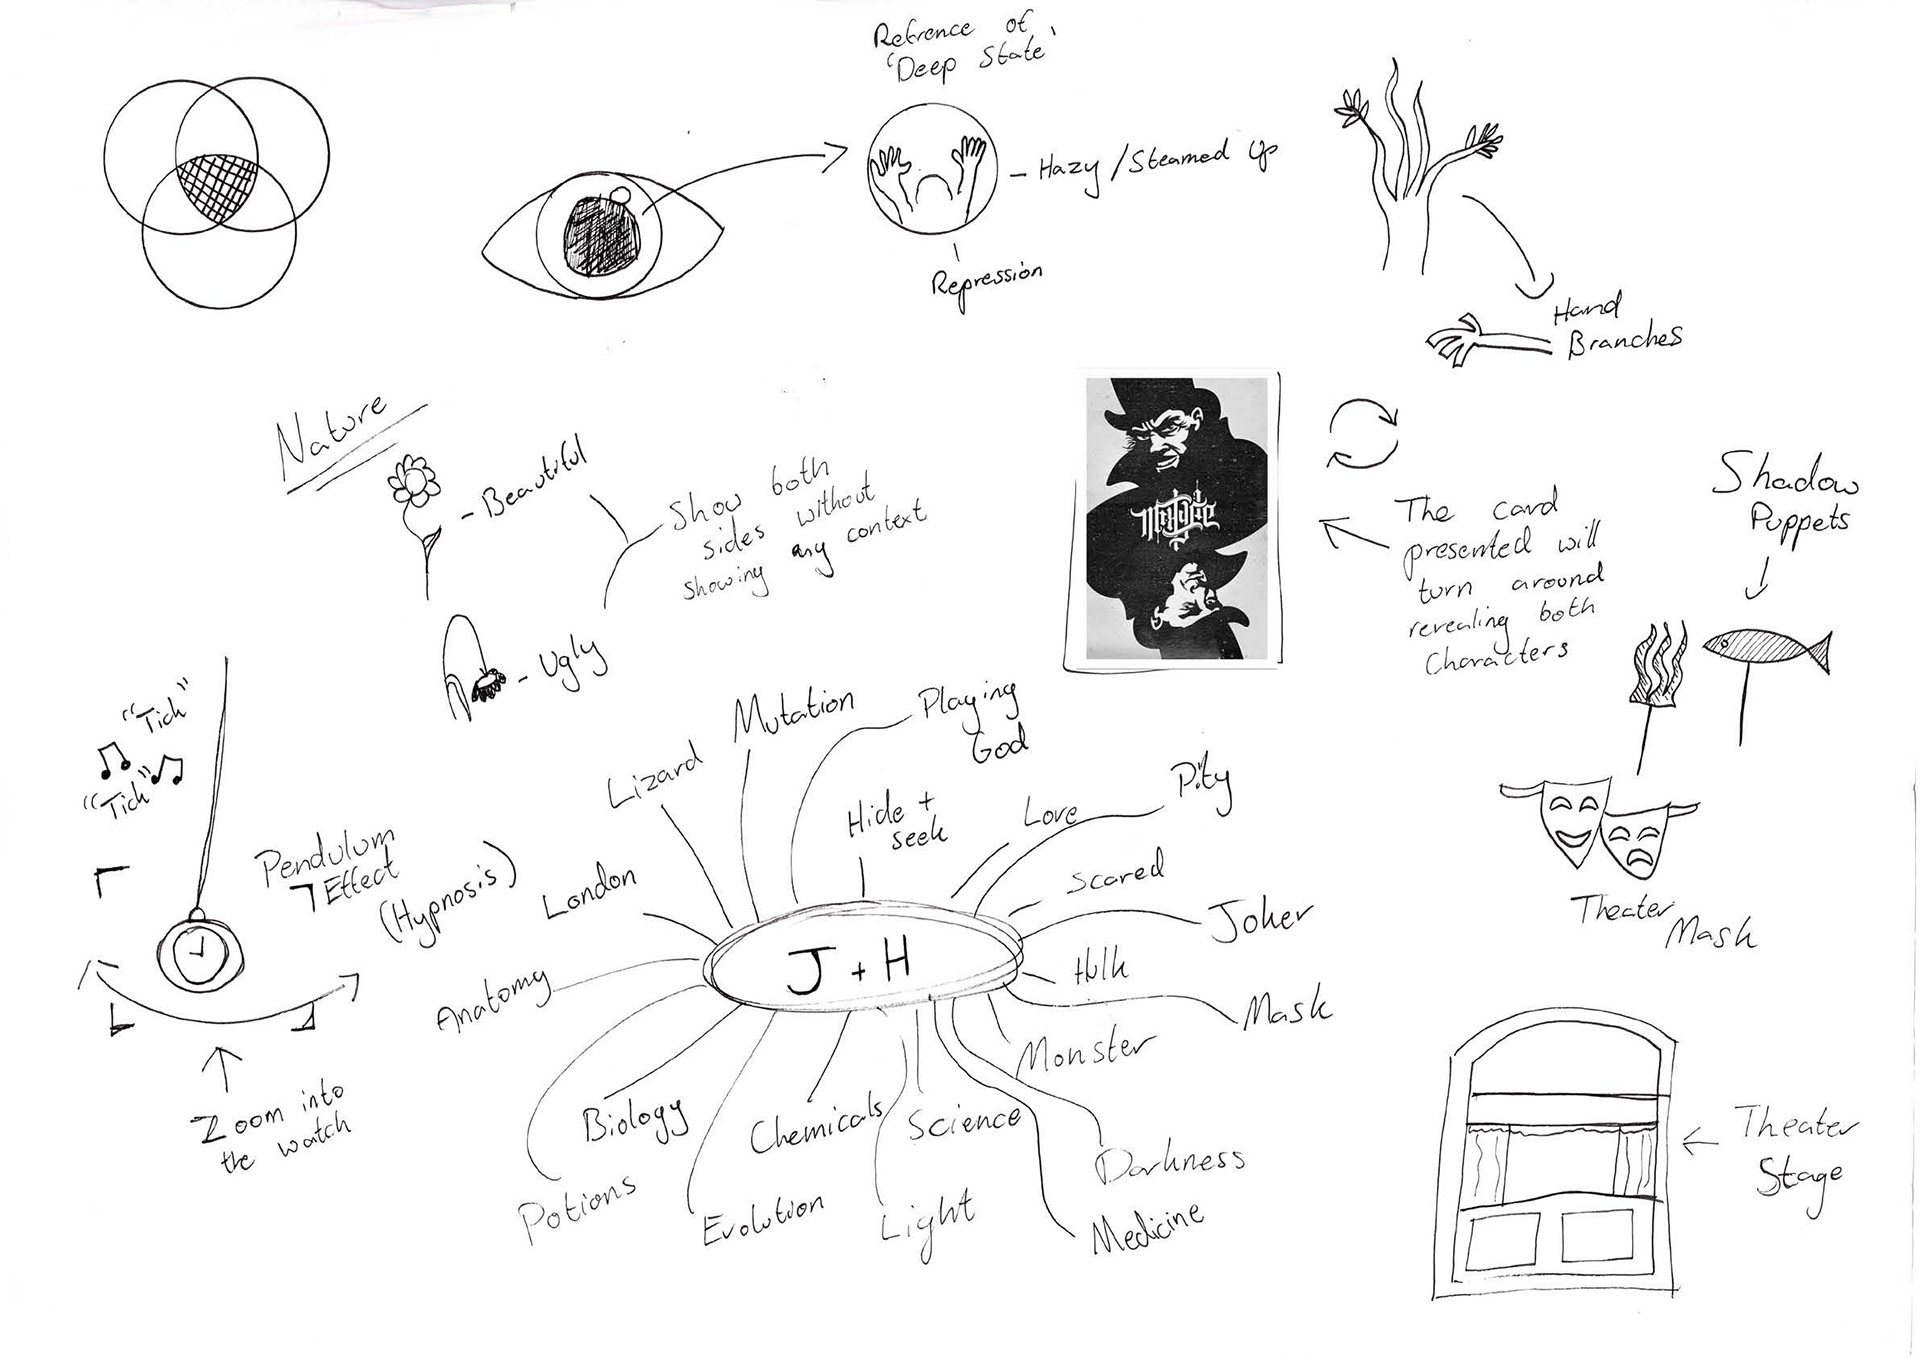 Refrence of
'Deep State'
- Hazy / Steamed up
Repression
Hand
Branches
Nature
- Beautiful
Show both
sides without
showing any context
- Ugly
The card
presented will
turn around
revealing both
Characters
Shadow
Puppets
"Tick"
"Tick"
Pendulum
Effect
(Hypnosis)
Zoom into
the watch
J + H
Lizard
Mutation
Playing
God
Hide +
seek
Love
Pity
Scared
Joker
Hulk
Mask
Monster
Darkness
Medicine
Science
Light
Chemicals
Evolution
Biology
Potions
Anatomy
London
Theater
Mask
Theater
Stage